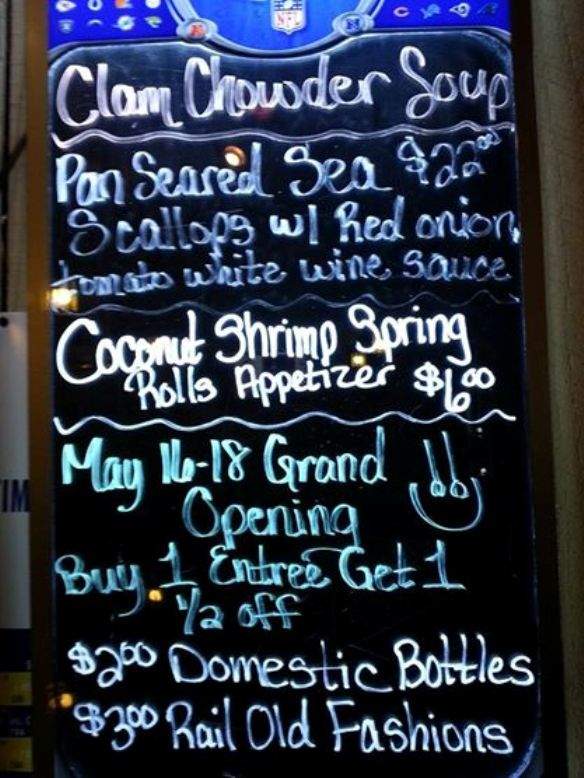 NFL
Clam Chowder Soup
Pan Seared Sea $22.00
Scallops w/ Red onion,
tomato white wine sauce
Coconut Shrimp Spring
Rolls Appetizer $6.00
May 16-18 Grand
Opening
Buy 1 Entree Get 1
1/2 off
$2.00 Domestic Bottles
$3.00 Rail Old Fashions
IM